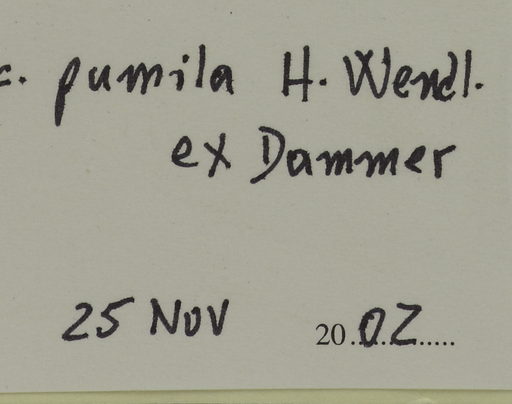 c. pumila H. Wendl.
ex Dammer
25 NOV 20.02.....